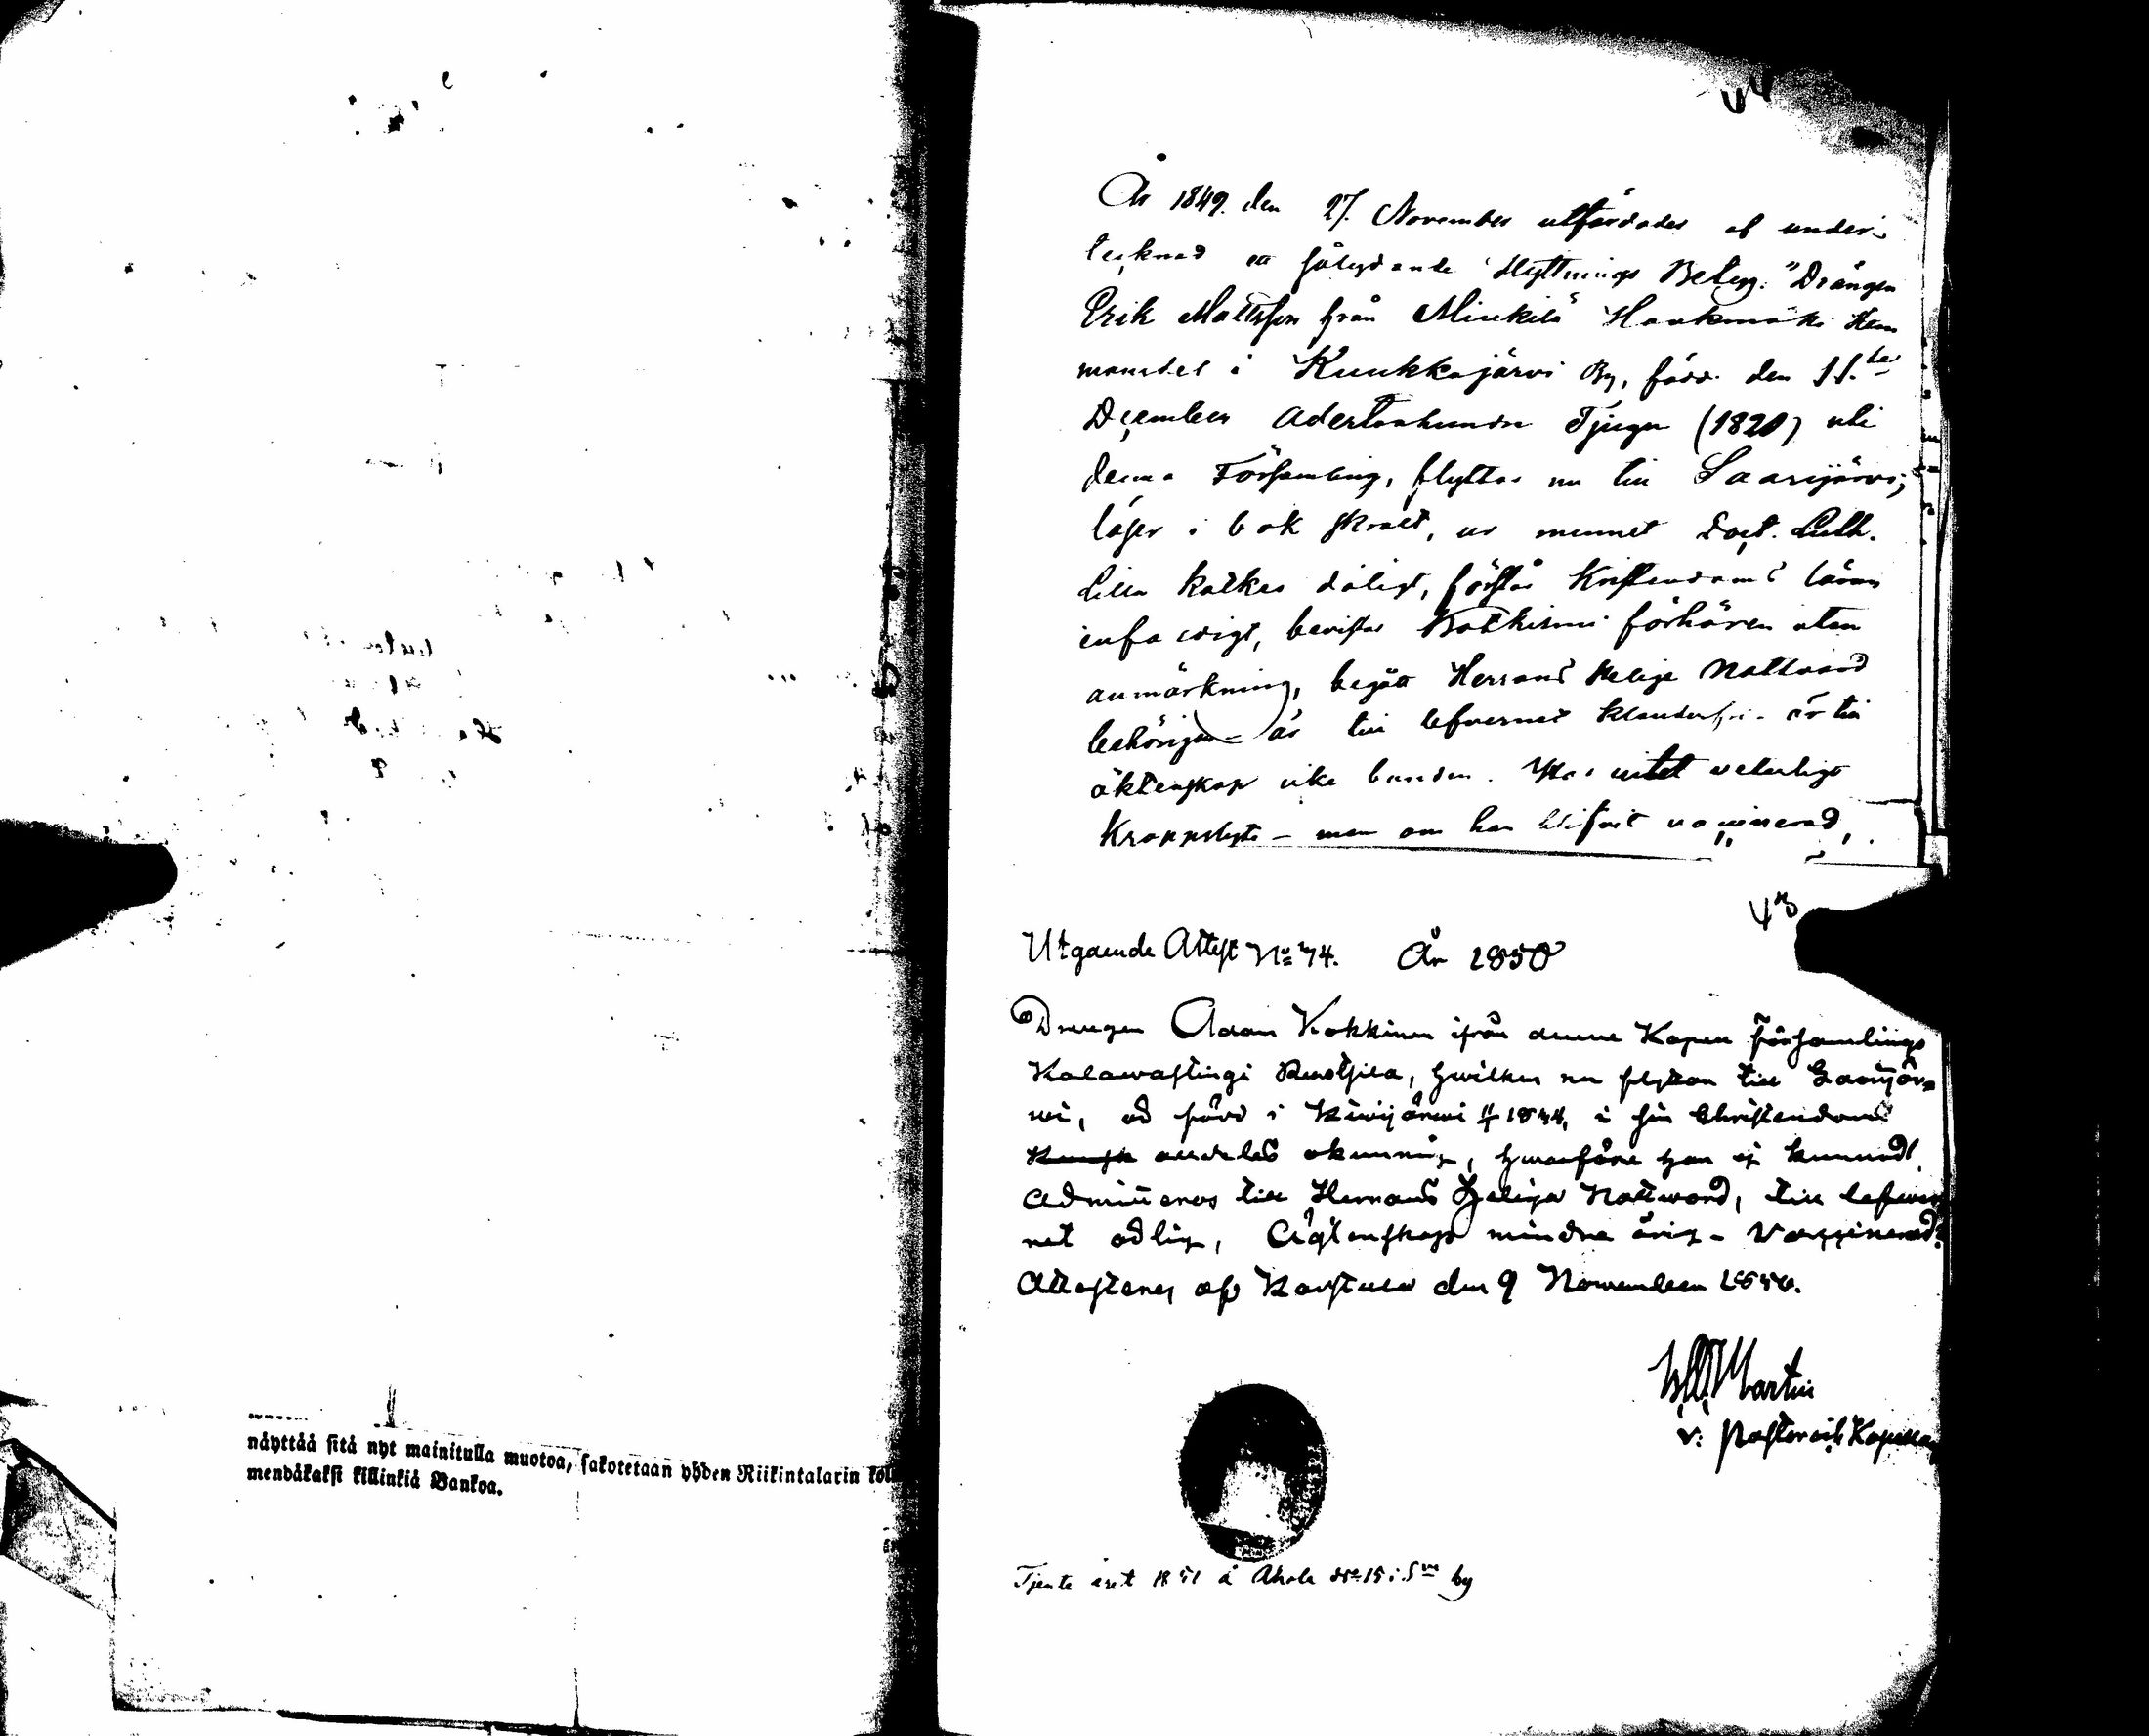 näyttää sitä nyt mainitulla muotoa, sakotetaan yhden Riikintalarin
mendäkaksi killinkiä Bankoa.
44
År 1849. den 27. November utfärdades af under-
tecknad ett sålydande Flyttnings Betyg: "Drängen
Erik Mattsson från Minkilä Haukmäki Hem
mansdel i Kuukkajärvi By, född den 11.te
December Adertonhundra Tjugu (1820) uti
denna Församling, flyttar nu till Saarijärvi;
läser i bok skralt, ur minnet Doct. Luth.
Lilla katkes dåligt, förstår Kristendoms läran
enfaldigt, bevistat förhören utan
anmärkning, begått Herrans Heliga Nattvard
behörigen – är till lefvernet klanderfri – är till
äktenskap icke bunden. Har intet veterligt
Kroppslyte – men om han blifvit vaccinerad,
43
Utgående Attest No 74. År 1850
Drengen Adam Kokkinen ifrån denne Kapell församlings
hwilken nu flyttar till Saarijär-
wi, är född i Kiwijärwi 1834, i sin Christendoms
alldeles okunnig, hwarföre han ej kunnat
admitteras till Herrans Heliga Nattward, till lefwer
net ärlig, Ägtenskap mindre årig – Vaccinerad.
Attesteras af Karstula den 9 November 1850.
Martin
v: Pastor och Kapellan
Tjente året 1851 å Ahola No 15 i S by